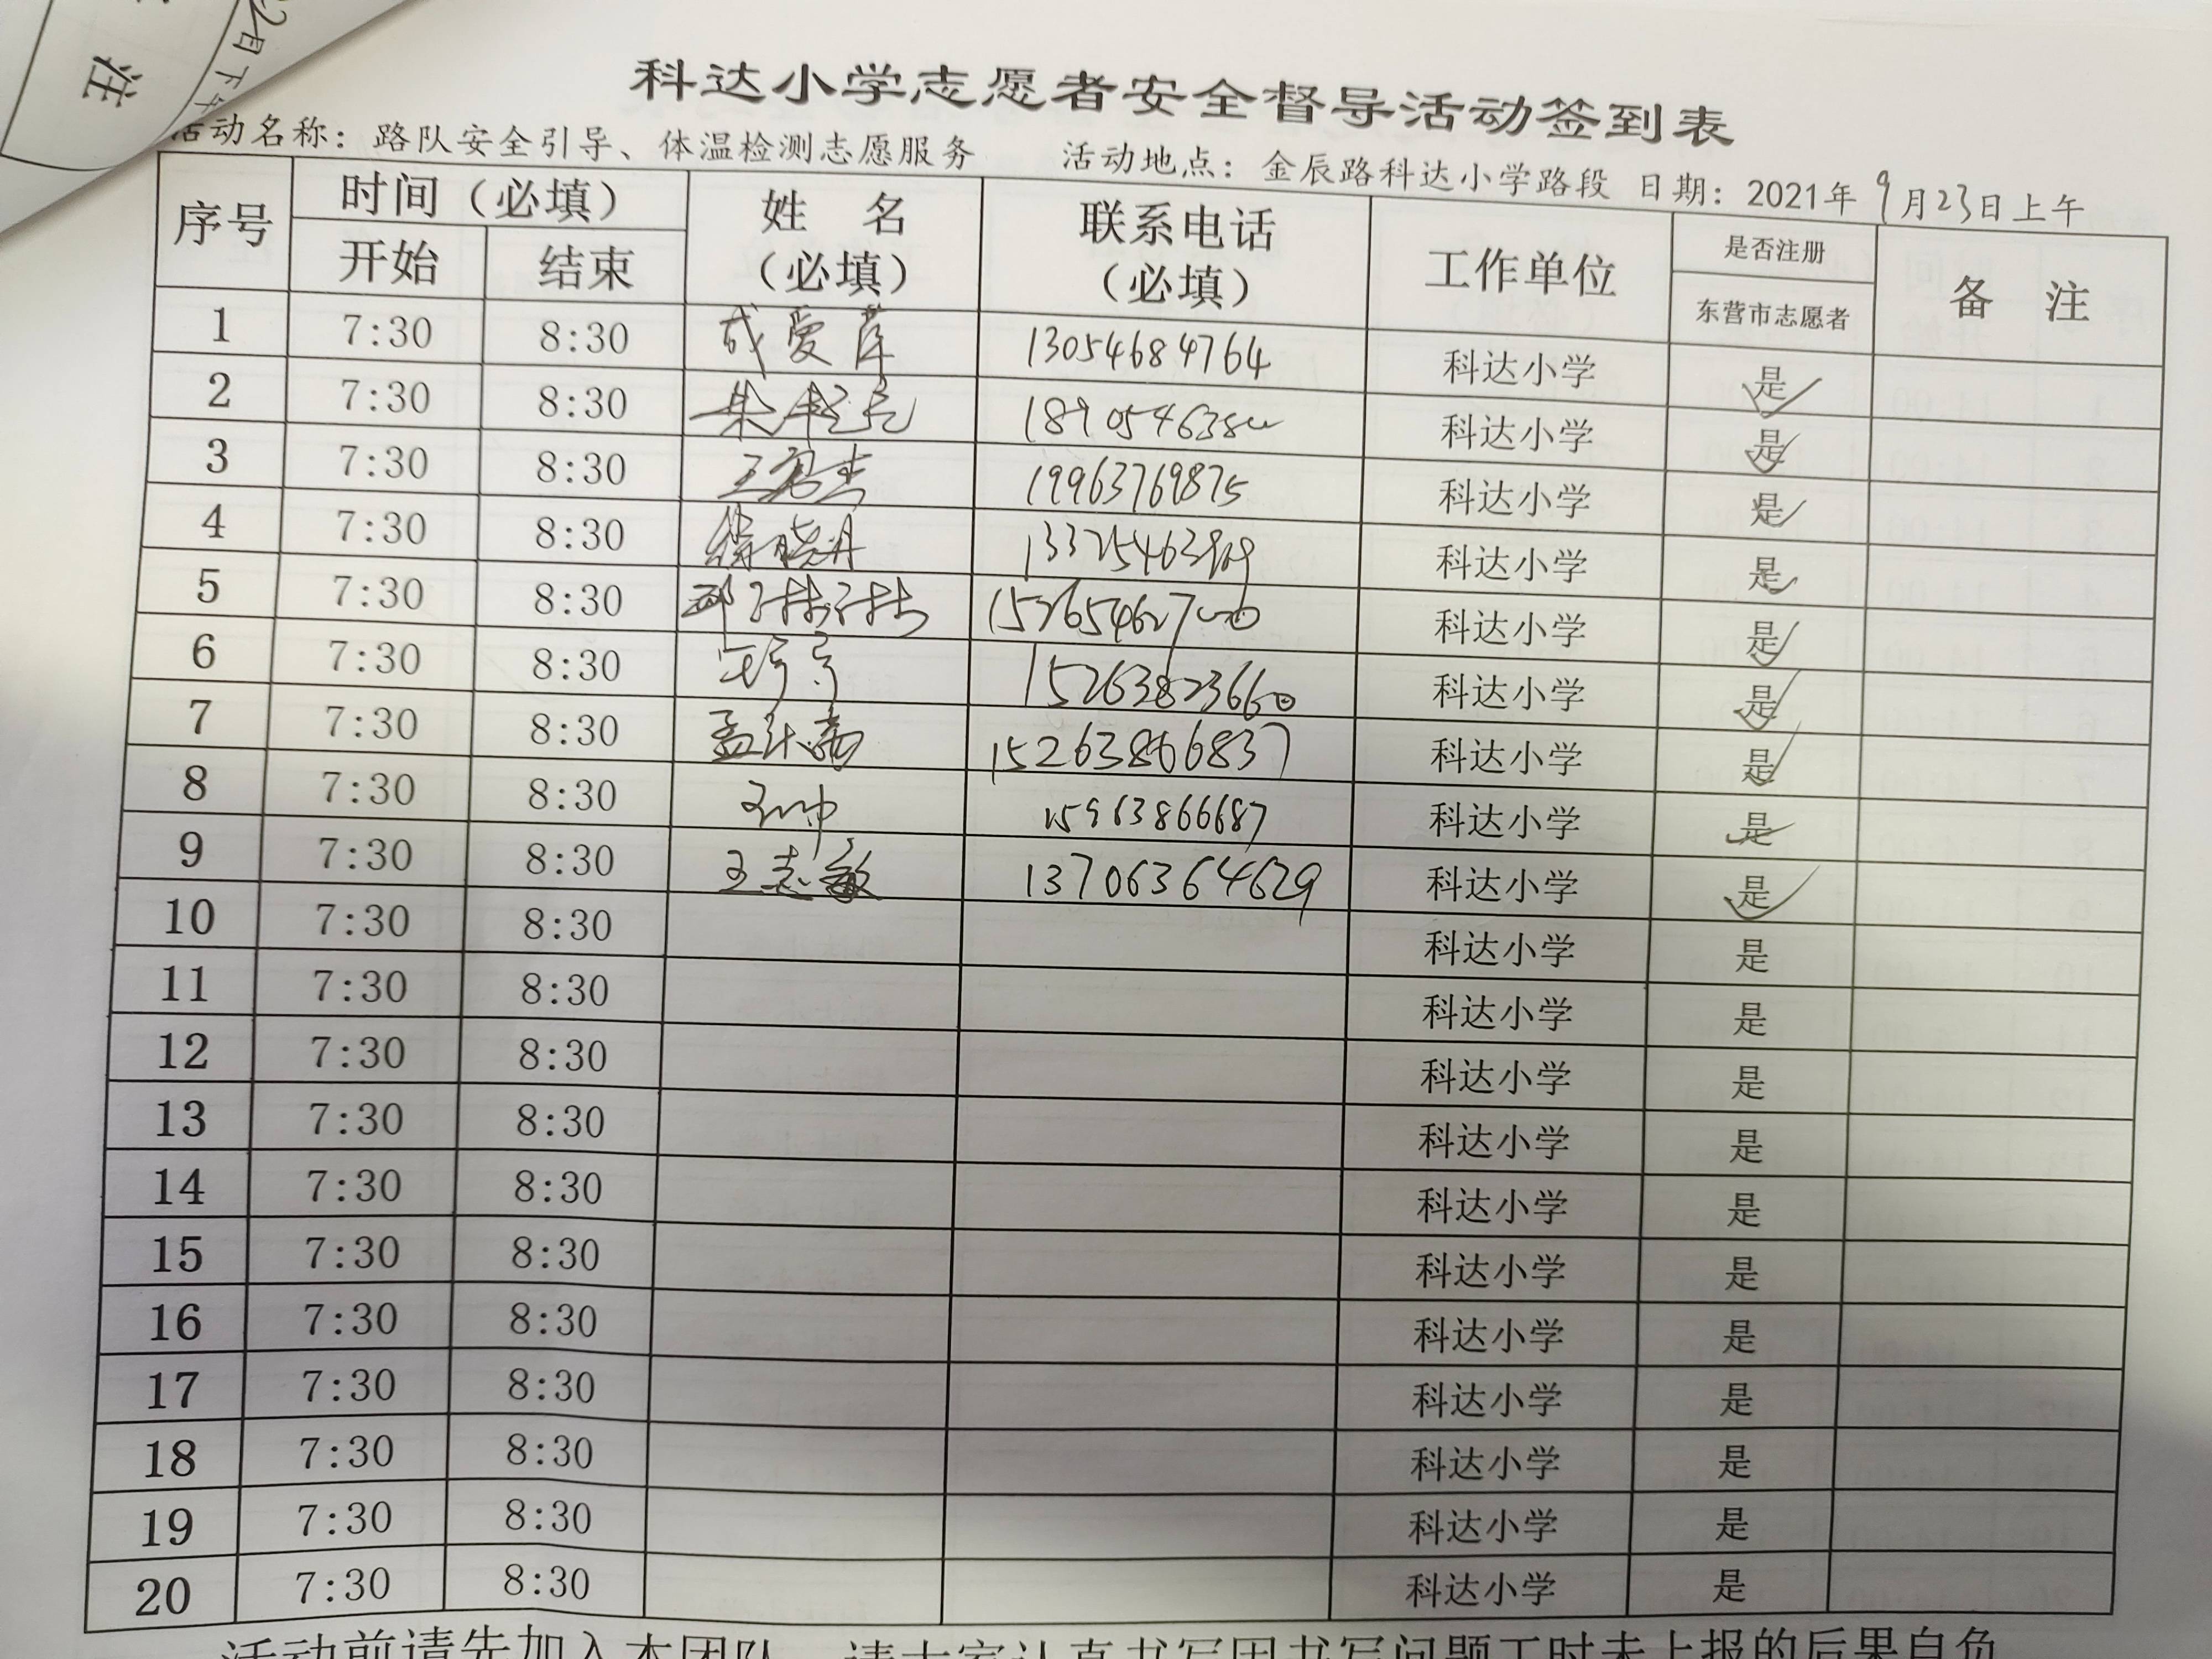 注
22日下午
科达小学志愿者安全督导活动签到表
活动名称：路队安全引导、体温检测志愿服务 活动地点：金辰路科达小学路段 日期：2021年9月23日上午
序号 时间（必填） 开始 结束 姓 名（必填） 联系电话（必填） 工作单位 是否注册 东营市志愿者 备 注
1 7:30 8:30 成爱萍 13054684764 科达小学 是
2 7:30 8:30 科达小学 是
3 7:30 8:30 19963769875 科达小学 是
4 7:30 8:30 徐晓丹 科达小学 是
5 7:30 8:30 科达小学 是
6 7:30 8:30 15263823660 科达小学 是
7 7:30 8:30 15263866837 科达小学 是
8 7:30 8:30 王帅 15963866687 科达小学 是
9 7:30 8:30 王志敏 13706364629 科达小学 是
10 7:30 8:30 科达小学 是
11 7:30 8:30 科达小学 是
12 7:30 8:30 科达小学 是
13 7:30 8:30 科达小学 是
14 7:30 8:30 科达小学 是
15 7:30 8:30 科达小学 是
16 7:30 8:30 科达小学 是
17 7:30 8:30 科达小学 是
18 7:30 8:30 科达小学 是
19 7:30 8:30 科达小学 是
20 7:30 8:30 科达小学 是
活动前请先加入本团队，请大家认真书写因书写问题工时未上报的后果自负